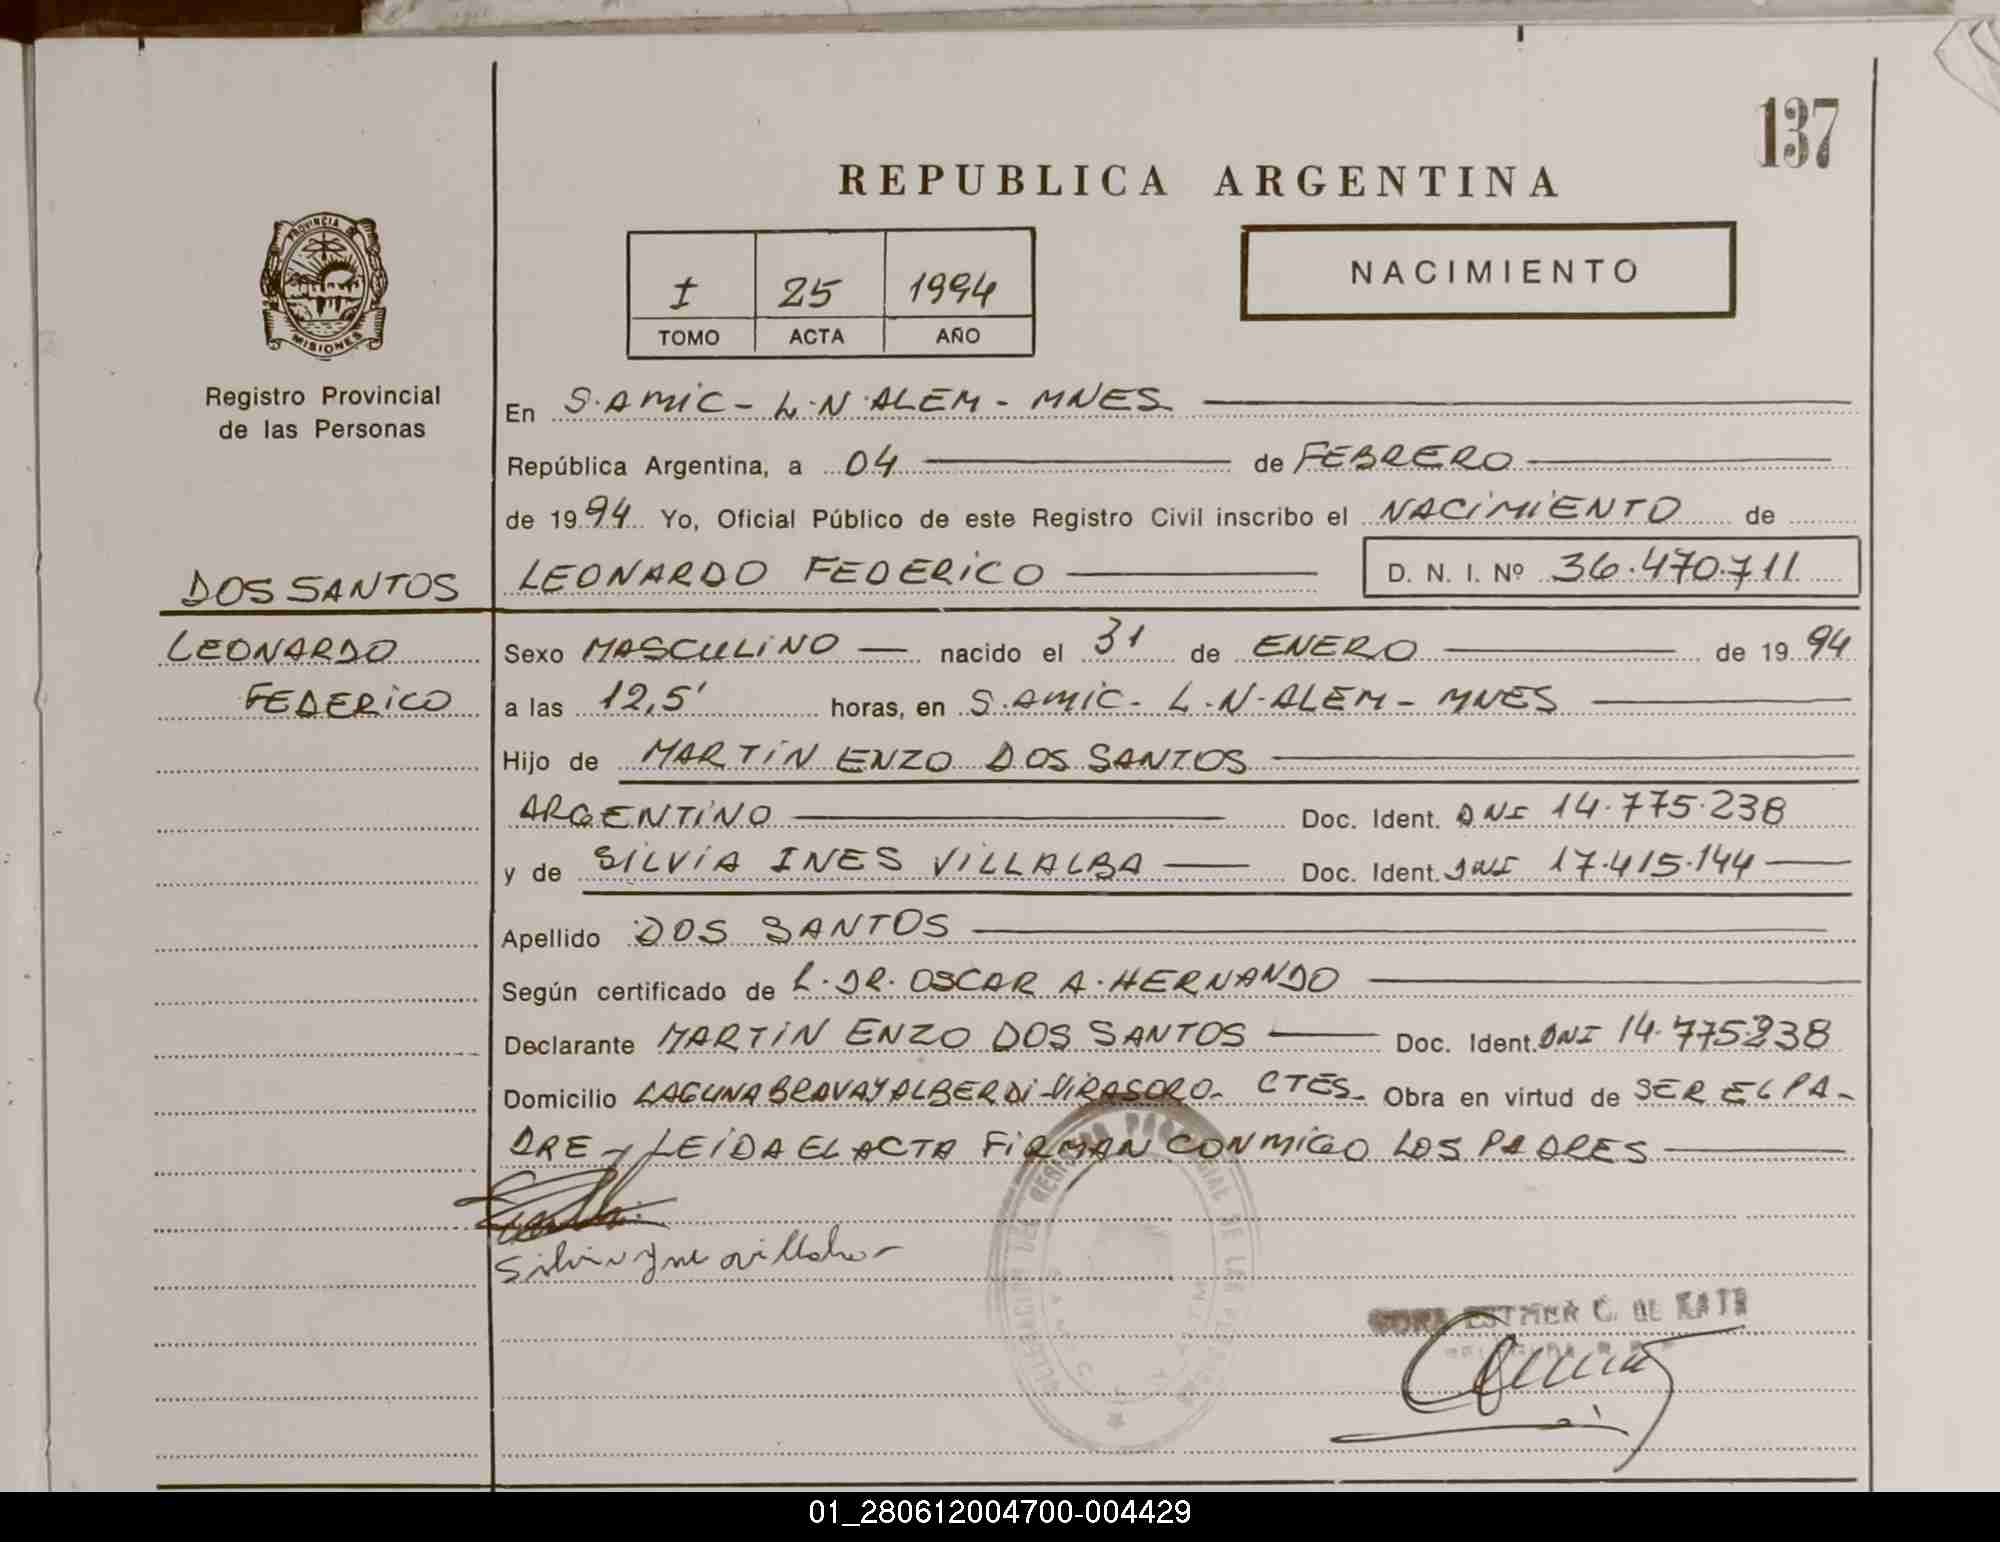 137
REPUBLICA ARGENTINA
PROVINCIA DE
MISIONES
Registro Provincial
de las Personas
I 25 1994
TOMO ACTA AÑO
NACIMIENTO
En S.AMIC - L.N.ALEM - MNES
República Argentina, a 04 de FEBRERO
de 1994 Yo, Oficial Público de este Registro Civil inscribo el NACIMIENTO de
DOS SANTOS LEONARDO FEDERICO D. N. I. Nº 36.470.711
LEONARDO Sexo MASCULINO nacido el 31 de ENERO de 1994
FEDERICO a las 12,5' horas, en S.AMIC - L.N.ALEM - MNES
Hijo de MARTIN ENZO DOS SANTOS
ARGENTINO Doc. Ident. DNI 14.775.238
y de SILVIA INES VILLALBA Doc. Ident. DNI 17.415.144
Apellido DOS SANTOS
Según certificado de L.DR. OSCAR A. HERNANDO
Declarante MARTIN ENZO DOS SANTOS Doc. Ident. DNI 14.775.238
Domicilio LAGUNA BRAVA Y ALBERDI - VIRASORO - CTES - Obra en virtud de SER EL PA-
DRE - LEIDA EL ACTA FIRMAN CONMIGO LOS PADRES
Silvia Ine Villalba
ESTHER C. DE
01_280612004700-004429